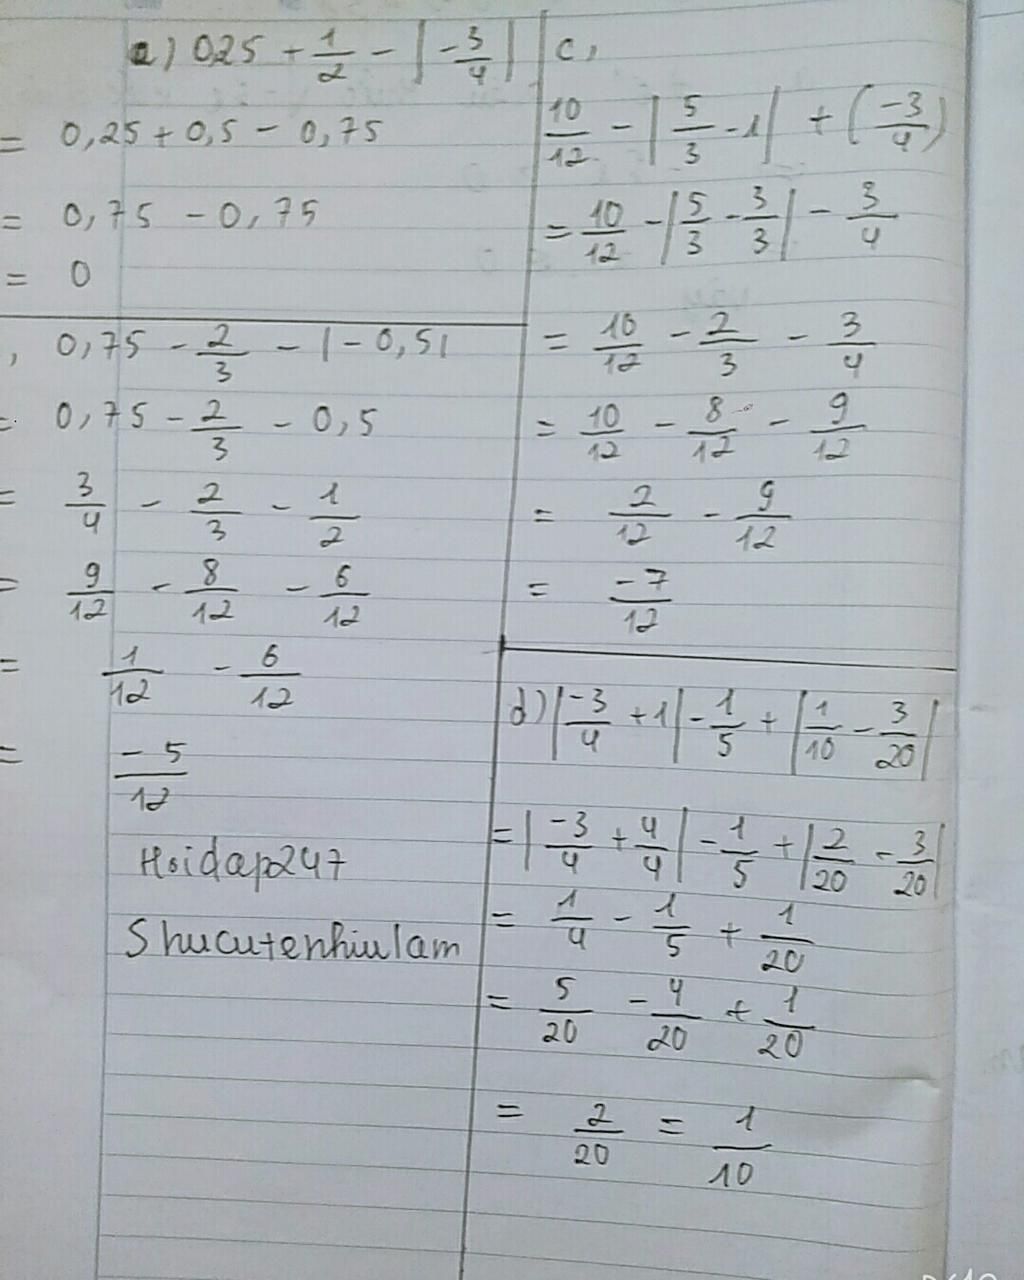 a) 0,25 + 1/2 - |-3/4|
= 0,25 + 0,5 - 0,75
= 0,75 - 0,75
= 0
, 0,75 - 2/3 - |-0,5|
= 0,75 - 2/3 - 0,5
= 3/4 - 2/3 - 1/2
= 9/12 - 8/12 - 6/12
= 1/12 - 6/12
= -5/12
Hoidap247
Shucutenhiulam
c,
10/12 - |5/3 - 1| + (-3/4)
= 10/12 - |5/3 - 3/3| - 3/4
= 10/12 - 2/3 - 3/4
= 10/12 - 8/12 - 9/12
= 2/12 - 9/12
= -7/12
d) |-3/4 + 1| - 1/5 + |1/10 - 3/20|
= |-3/4 + 4/4| - 1/5 + |2/20 - 3/20|
= 1/4 - 1/5 + 1/20
= 5/20 - 4/20 + 1/20
= 2/20 = 1/10